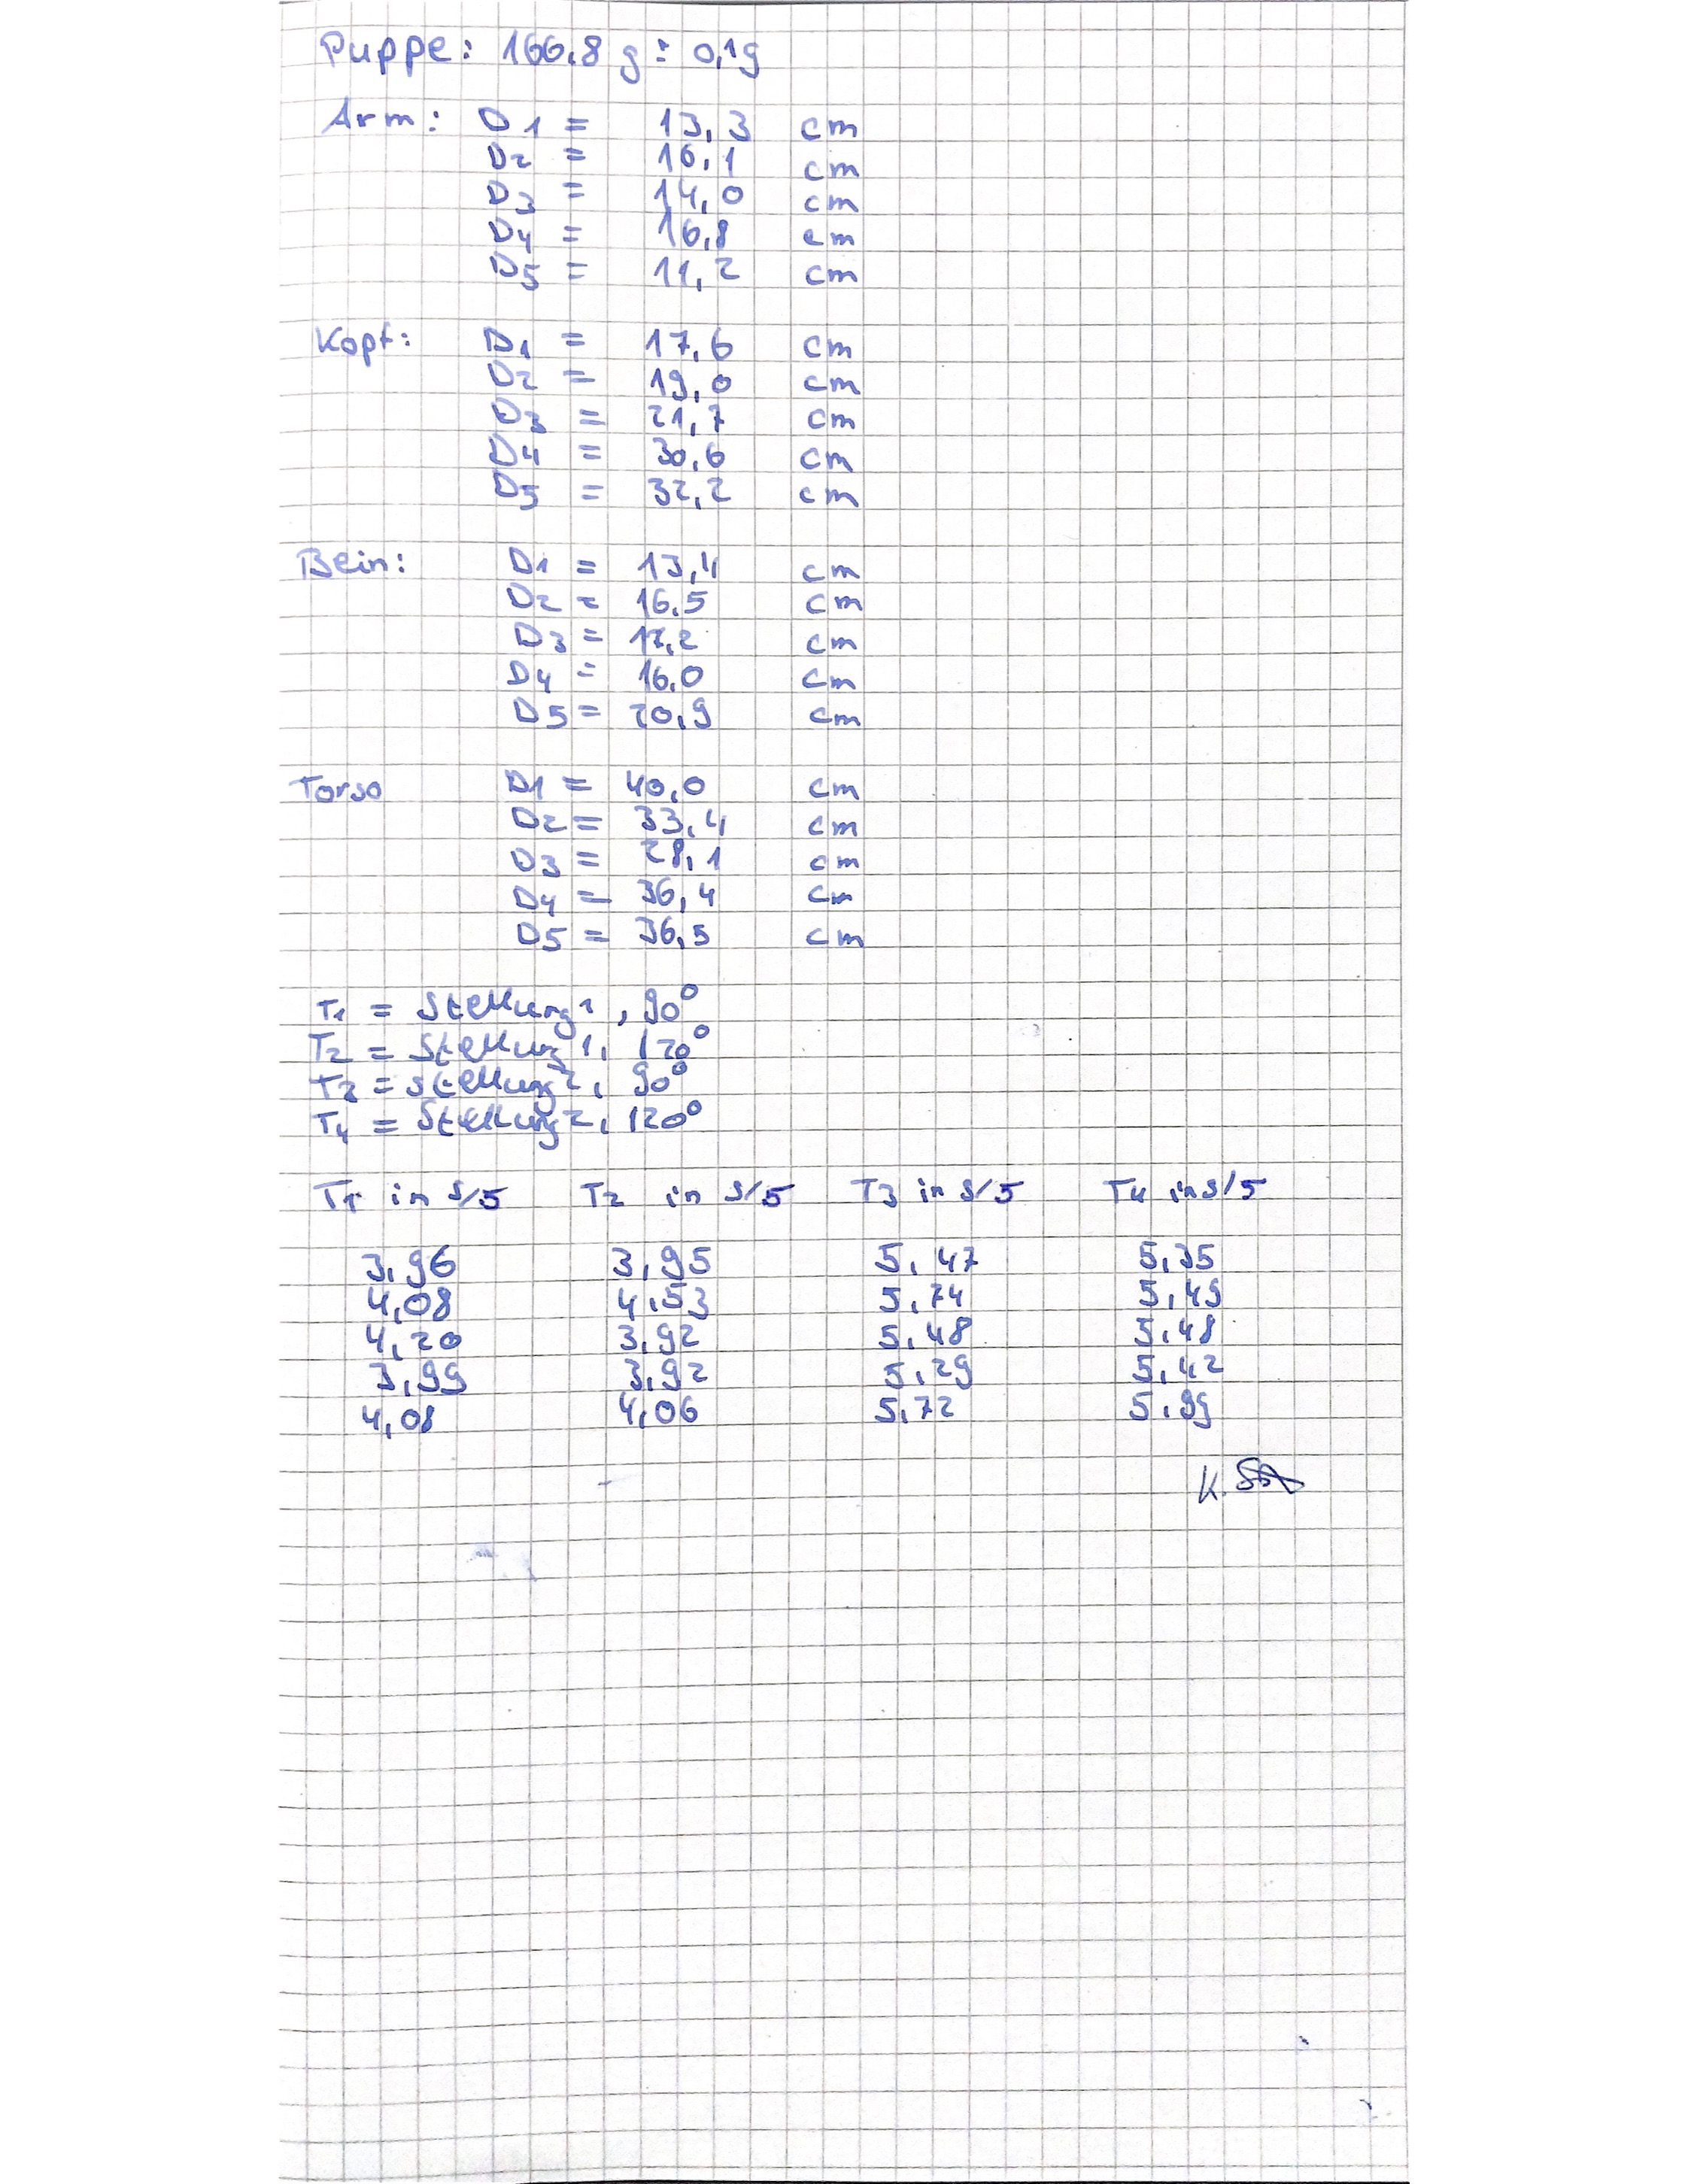 Puppe: 166,8 g ± 0,1g
Arm: D1 = 13,3 cm
D2 = 16,1 cm
D3 = 14,0 cm
D4 = 16,8 cm
D5 = 11,2 cm
Kopf: D1 = 17,6 cm
D2 = 19,0 cm
D3 = 21,7 cm
D4 = 30,6 cm
D5 = 32,2 cm
Bein: D1 = 13,4 cm
D2 = 16,5 cm
D3 = 17,2 cm
D4 = 16,0 cm
D5 = 20,9 cm
Torso D1 = 40,0 cm
D2 = 33,4 cm
D3 = 28,1 cm
D4 = 36,4 cm
D5 = 36,5 cm
T1 = Stellung 1, 90°
T2 = Stellung 1, 120°
T3 = Stellung 2, 90°
T4 = Stellung 2, 120°
T1 in s/5 T2 in s/5 T3 in s/5 T4 in s/5
3,96 3,95 5,47 5,35
4,08 4,53 5,74 5,49
4,20 3,92 5,48 5,48
3,99 3,92 5,29 5,42
4,08 4,06 5,72 5,99
K.